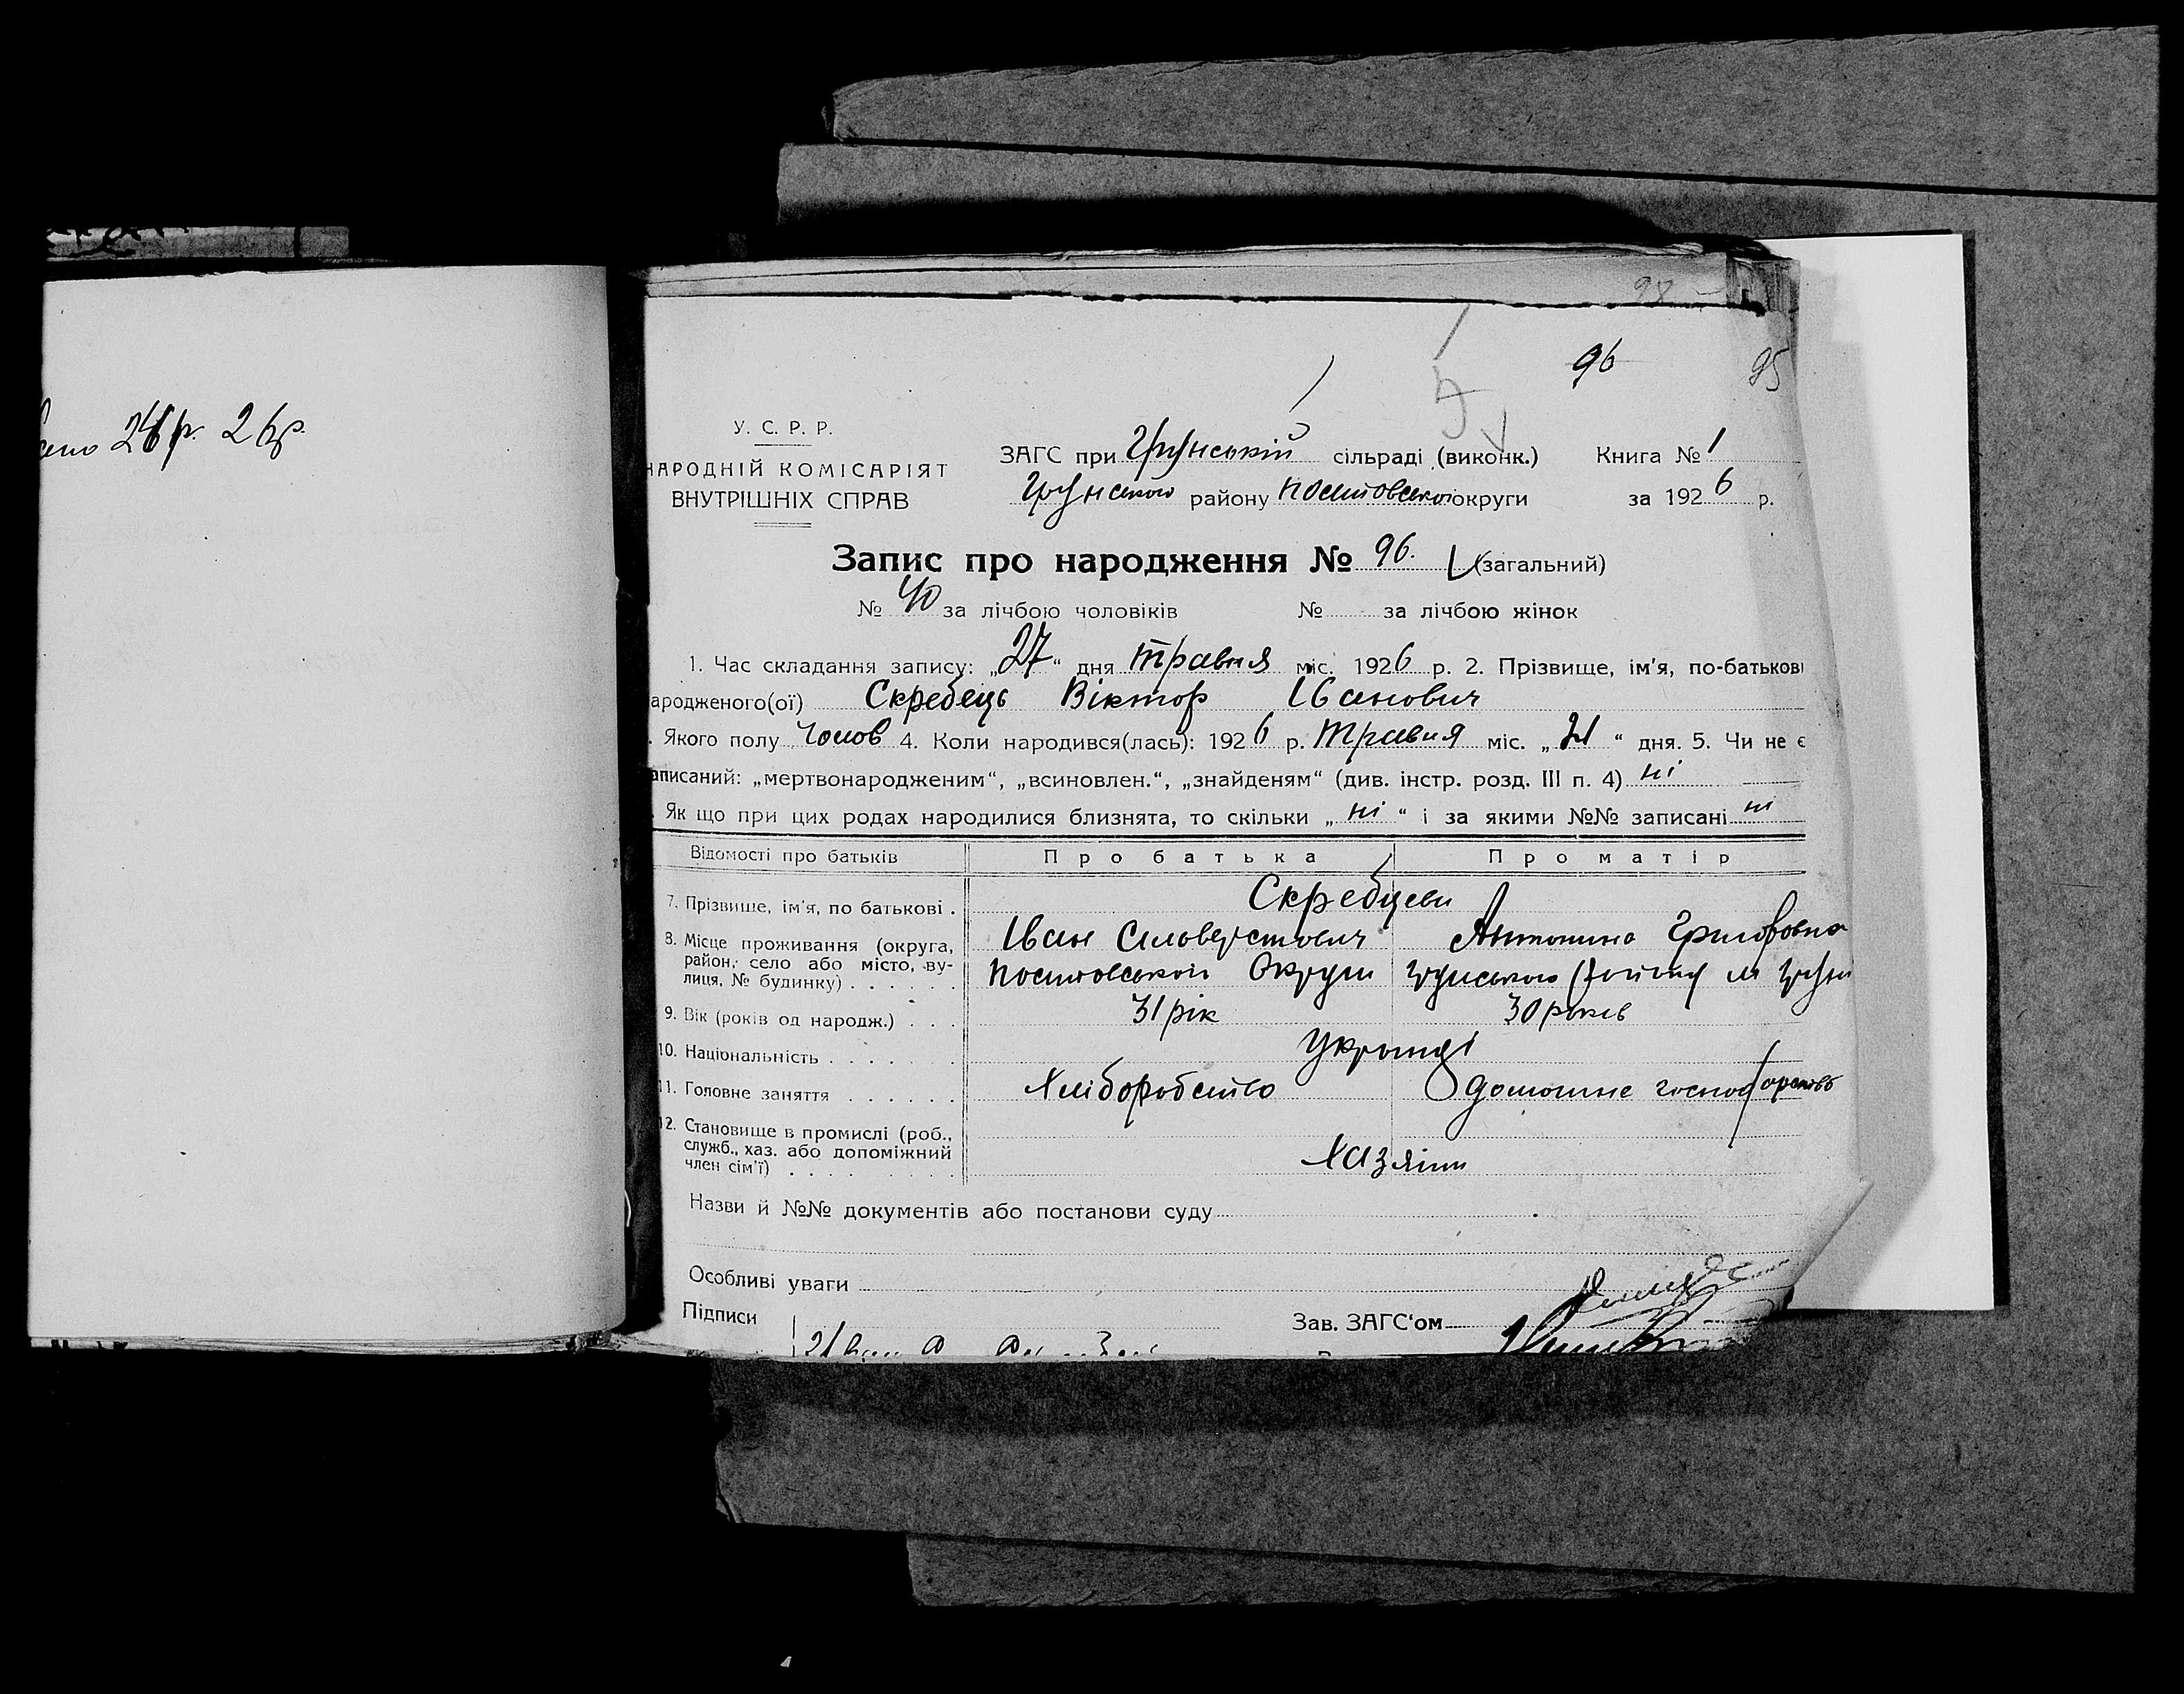 24 р. 26 р.
98
96
95
У. С. Р. Р.
НАРОДНІЙ КОМІСАРІЯТ
ВНУТРІШНІХ СПРАВ
ЗАГС при Грунській сільраді (виконк.) Книга № 1
Грунського району округи за 1926 р.
Запис про народження № 96. (загальний)
№ 40 за лічбою чоловіків № за лічбою жінок
1. Час складання запису: „27“ дня травня міс. 1926 р. 2. Прізвище, ім'я, по-батькові
ародженого(ої) Скребець Віктор Іванович
. Якого полу чолов 4. Коли народився(лась): 1926 р. травня міс. „21“ дня. 5. Чи не є
аписаний: „мертвонародженим“, „всиновлен.“, „знайденям“ (див. інстр. розд. III п. 4) ні
. Як що при цих родах народилися близнята, то скільки „ні“ і за якими №№ записані ні
Відомості про батьків Про батька Про матір
7. Прізвище, ім'я, по батькові . Скребцеви
Іван Сильверстович Антонина Григоровна
8. Місце проживання (округа, район, село або місто, вулиця, № будинку) . . . . . . Округи Грунського району м Грунь
9. Вік (років од народж.) . . . 31 рік 30 років
10. Національність . . . . . Українці
11. Головне заняття . . . . . . Хліборобство домашне господарство
12. Становище в промислі (роб., служб., хаз. або допоміжний член сім'ї) . . . . . . . . Хазяіни
Назви й №№ документів або постанови суду
Особливі уваги
Підписи Зав. ЗАГС'ом